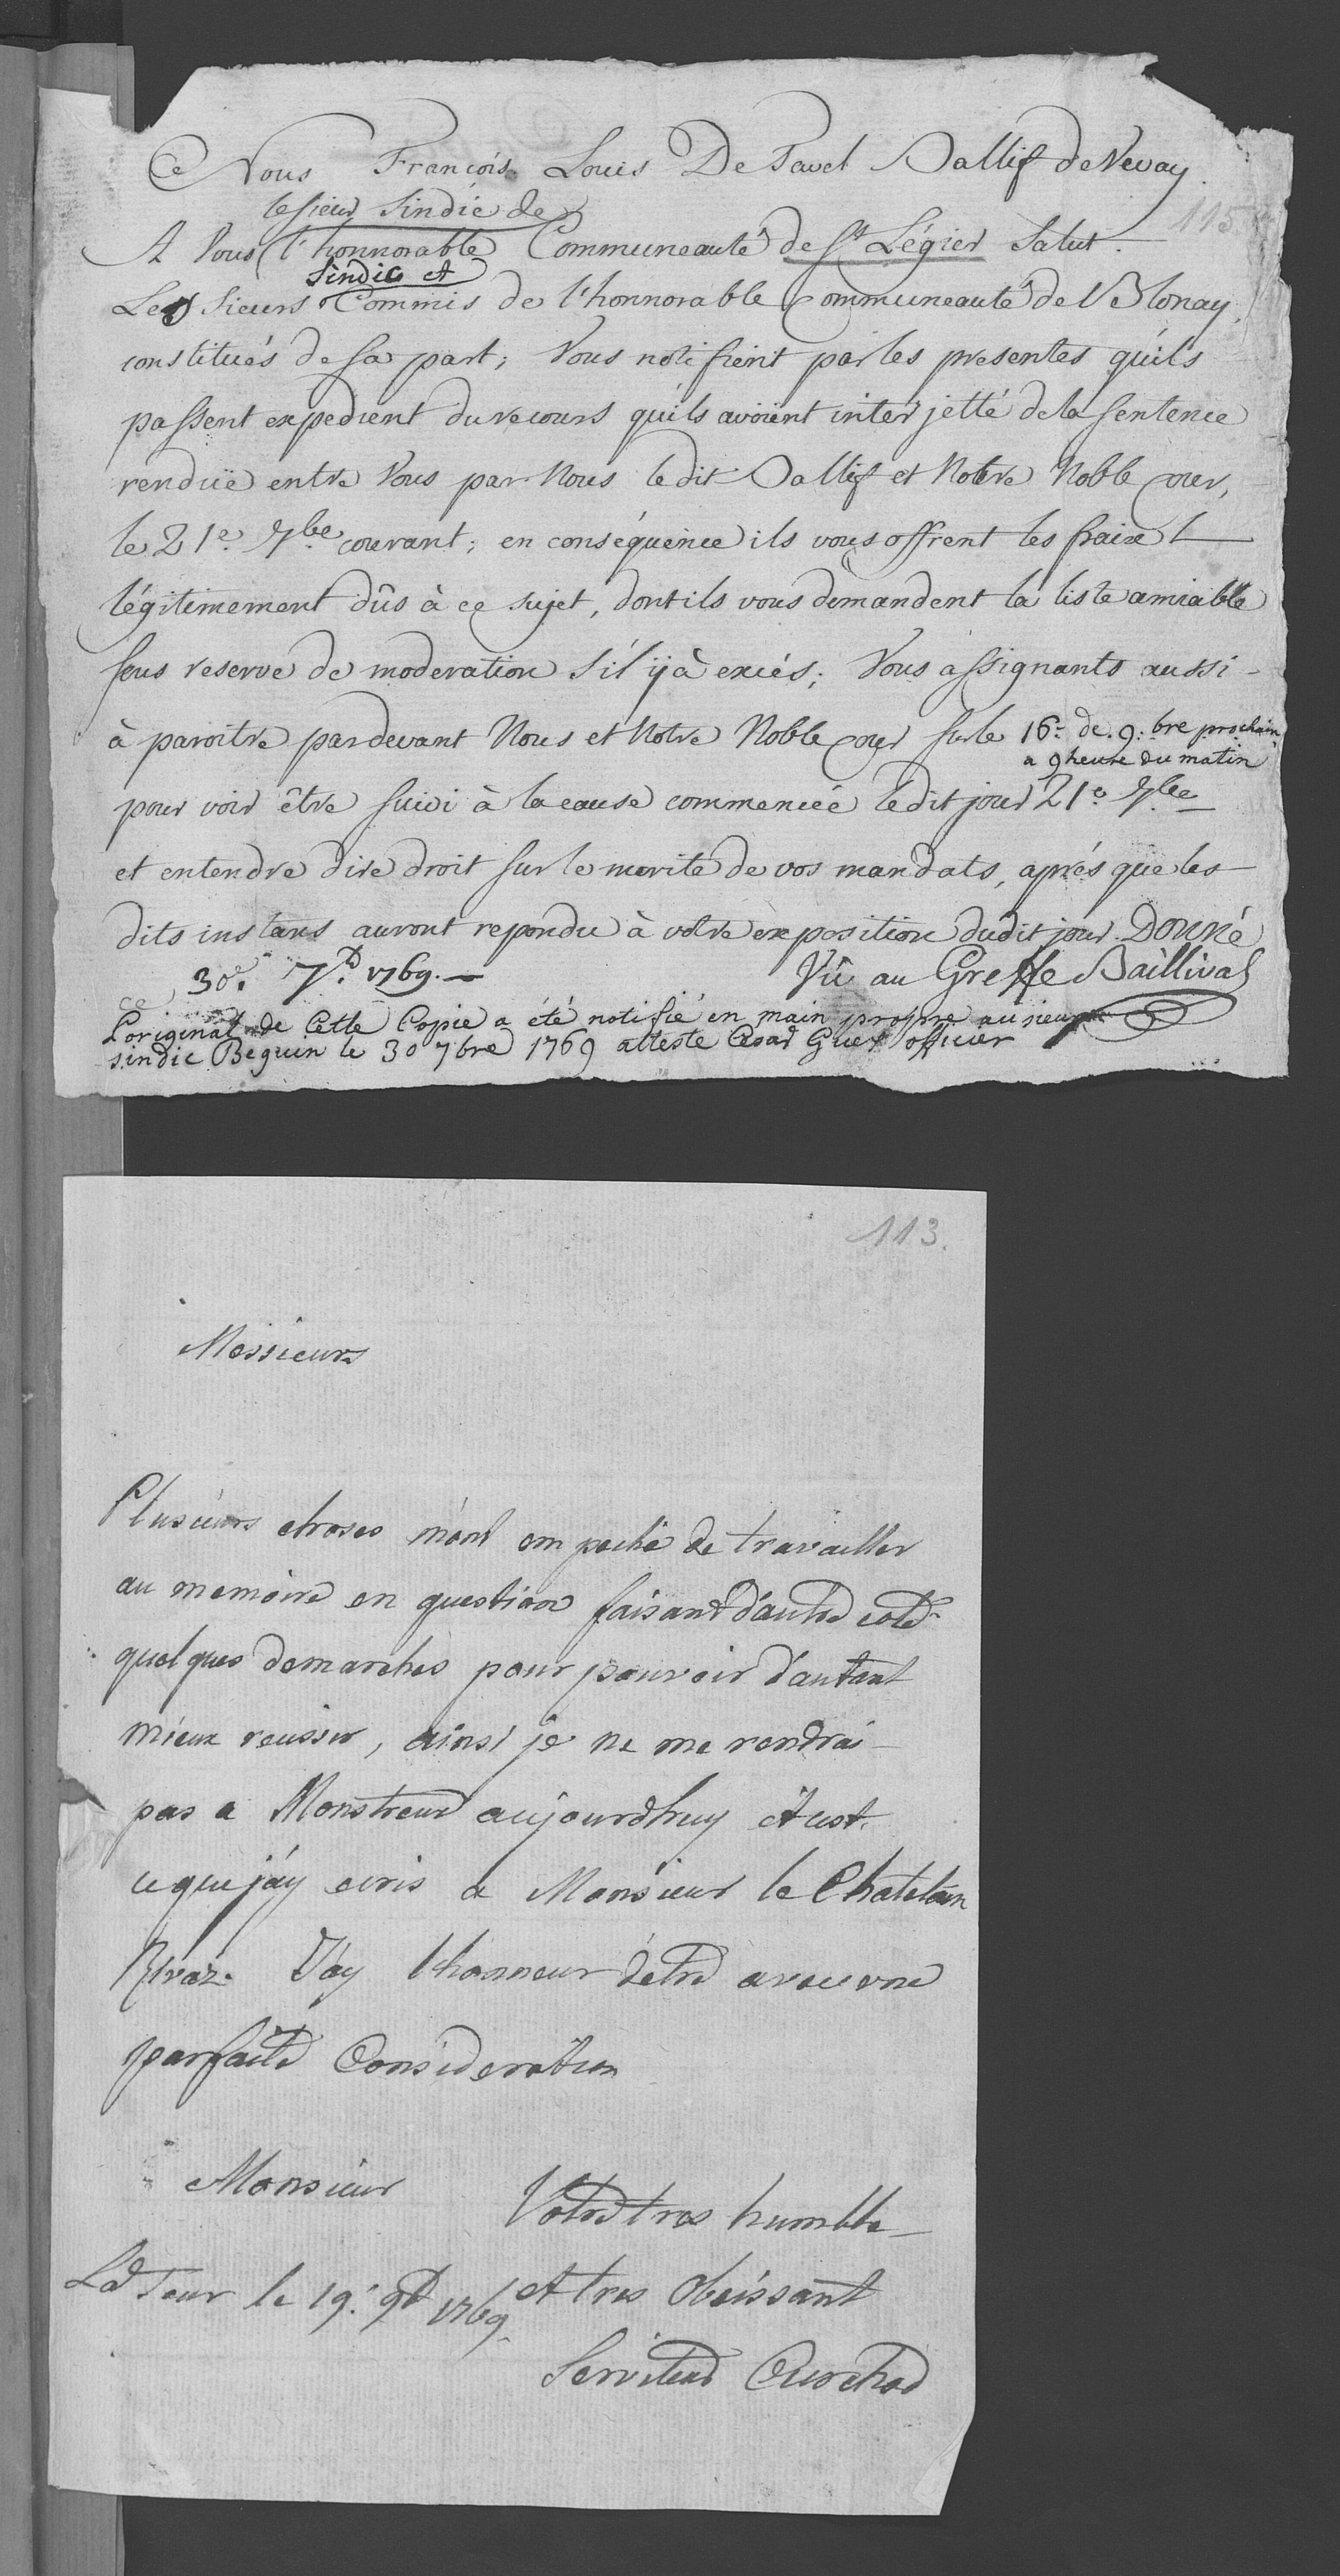 Nous François Louis De Tavel Ballif de Vevay
115.
le sieur Sindic de
A Vous l'honnorable Communeauté de St Légier Salut.
Sindic et
Les Sieurs Commis de l'honnorable Communeauté de Blonay,
constitués de sa part; Vous notifient par les presentes qu'ils
passent expedient du recours qu'ils avoient interjetté de la sentence
rendüe entre Vous par Nous le dit Ballif et Notre Noble Cour,
le 21e 7bre courant; en conséquence ils vous offrent les fraix
légitimement dûs à ce sujet, dont ils vous demandent la liste amiable
sous reserve de moderation s'il ÿ à excés; Vous assignants aussi
à paroitre pardevant Nous et Notre Noble Cour sur le 16e de 9.bre prochain
a 9 heure du matin
pour voir être suivi à la cause commencée le dit jour 21e 7bre
et entendre dire droit sur le merite de vos mandats, aprés que les
dits instans auront repondu à votre exposition dudit jour. Donné
ce 30e. 7b 1769.
Vû au Greffe Baillival
L'original de Cette Copie a été notifié en main propre au sieur
sindic Beguin le 30 7bre 1769 atteste Cesar Guex officier
113.
Messieurs
Plusieurs choses m'ont empeché de travailler
au memoire en question faisant d'autre coté
quelques demarches pour pouvoir d'autant
mieux reussir, ainsi je ne me rendrai
pas a Monstreux aujourdhuy et cest
ce que j'ay ecris a Monsieur le Chatelain
J'ay l'honneur detre avec une
parfaite Consideration
Monsieur
Votre tres humble
La Tour le 19. 9b 1769
et tres Obeissant
Serviteur Curchod